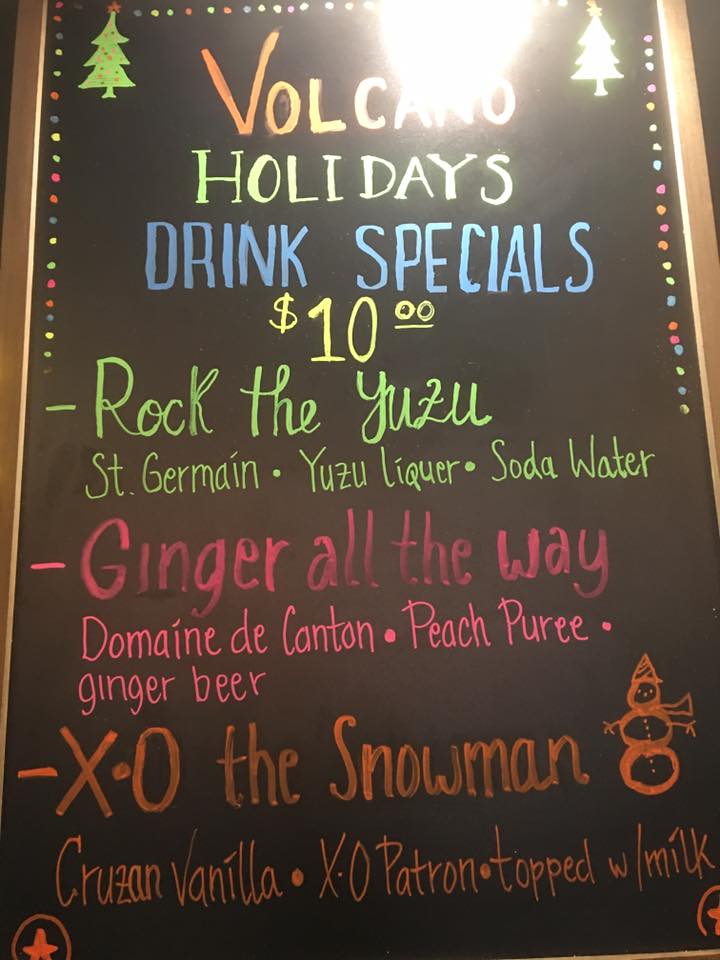 VOLCANO
HOLIDAYS
DRINK SPECIALS
$10 00
- Rock the Yuzu
St. Germain • Yuzu liquer • Soda Water
- Ginger all the way
Domaine de Canton • Peach Puree •
ginger beer
- X•O the Snowman
Cruzan Vanilla • X•O Patron • topped w/milk